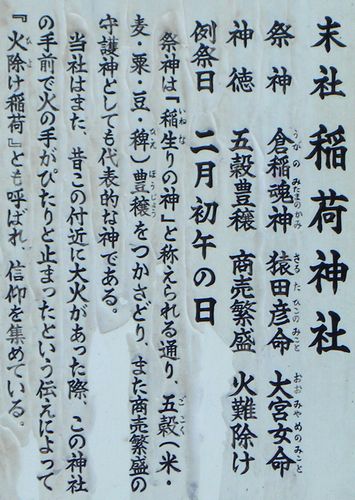 末社 稲荷神社
祭神 倉稲魂神 猿田彦命 大宮女命
神徳 五穀豊穣 商売繁盛 火難除け
例祭日 二月初午の日
祭神は『稲生りの神』と称えられる通り、五穀(米・
麦・粟・豆・稗)豊穣をつかさどり、また商売繁盛の
守護神としても代表的な神である。
当社はまた、昔この付近に大火があった際、この神社
の手前で火の手がぴたりと止まったという伝えによって
『火除け稲荷』とも呼ばれ、信仰を集めている。